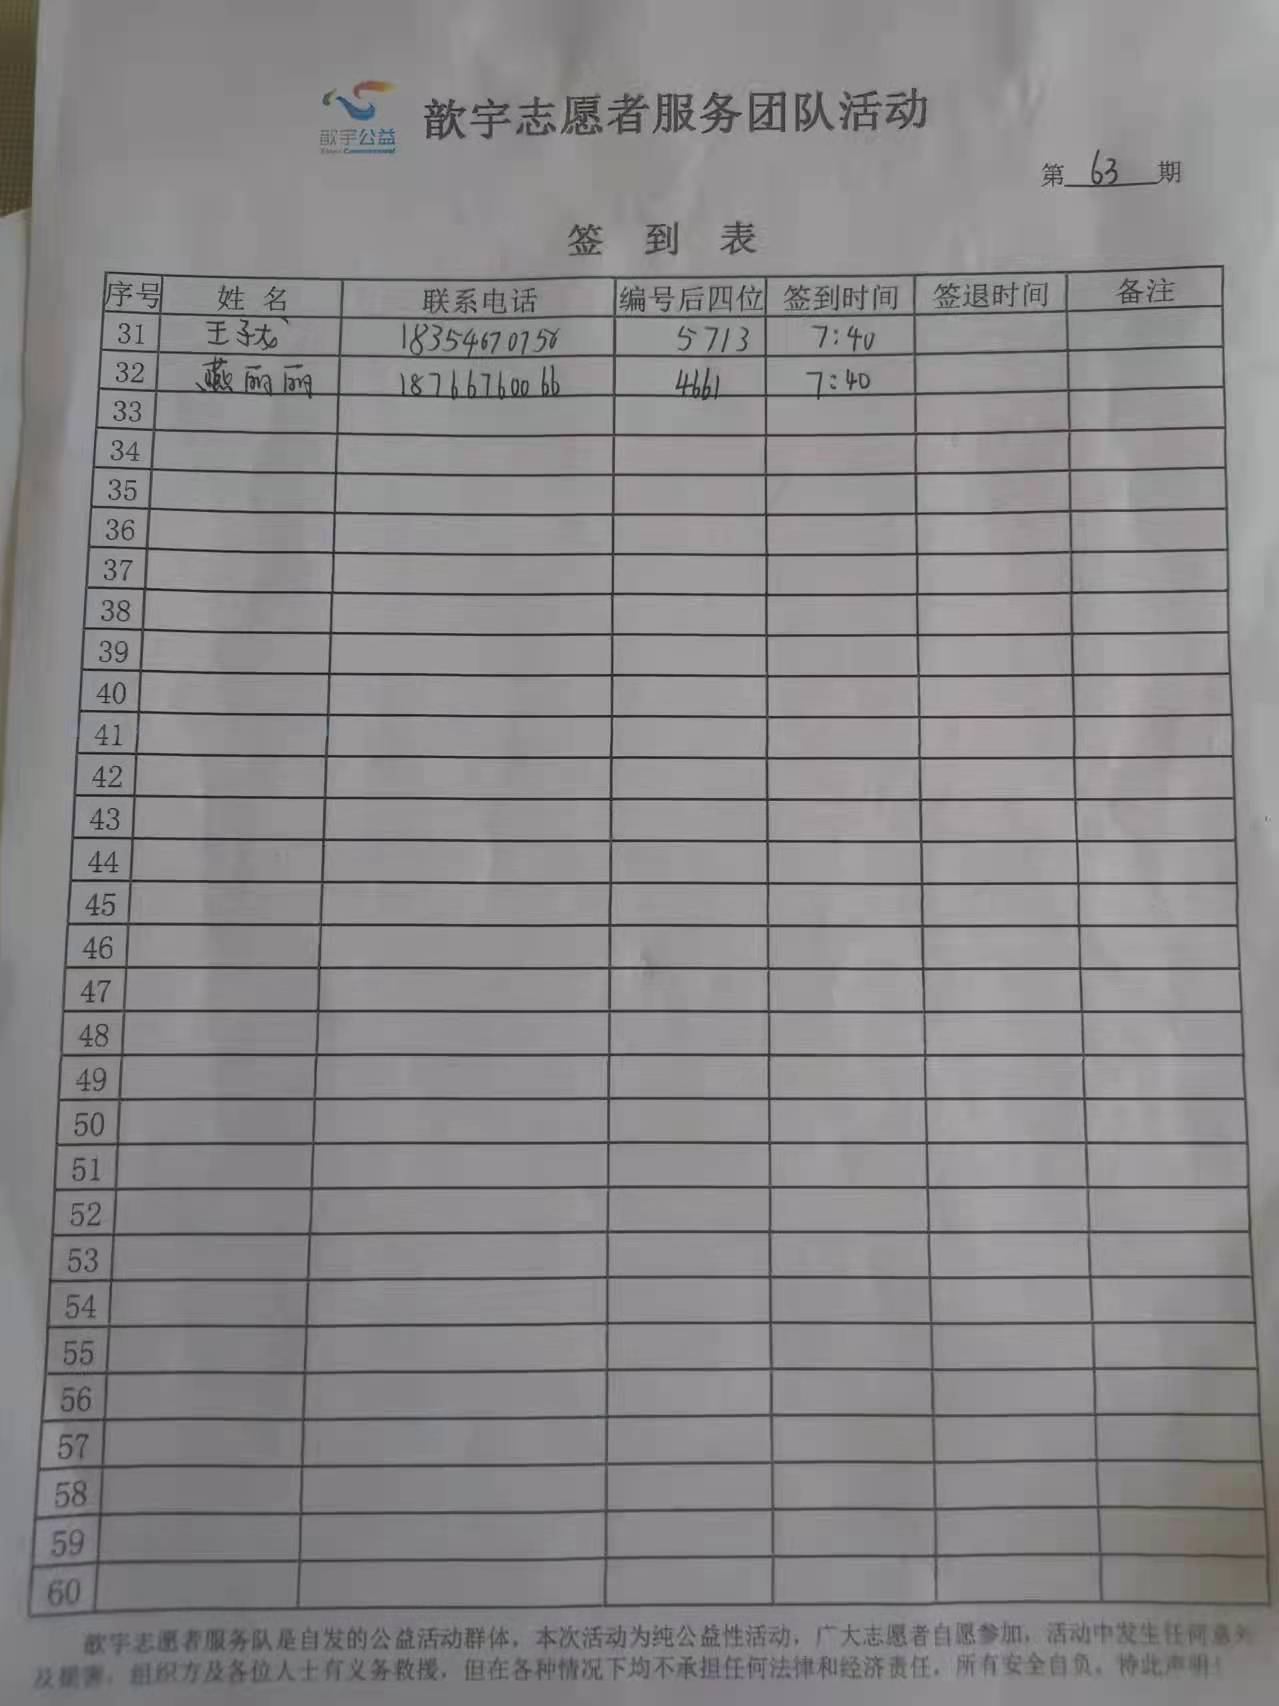 歆宇公益
歆宇志愿者服务团队活动
第 63 期
签 到 表
序号 姓 名 联系电话 编号后四位 签到时间 签退时间 备注
31 王子龙 18354670756 5713 7:40
32 燕丽丽 18766760066 4661 7:40
33
34
35
36
37
38
39
40
41
42
43
44
45
46
47
48
49
50
51
52
53
54
55
56
57
58
59
60
歆宇志愿者服务队是自发的公益活动群体，本次活动为纯公益性活动，广大志愿者自愿参加，活动中发生任何意外
及损害，组织方及各位人士有义务救援，但在各种情况下均不承担任何法律和经济责任，所有安全自负。特此声明！